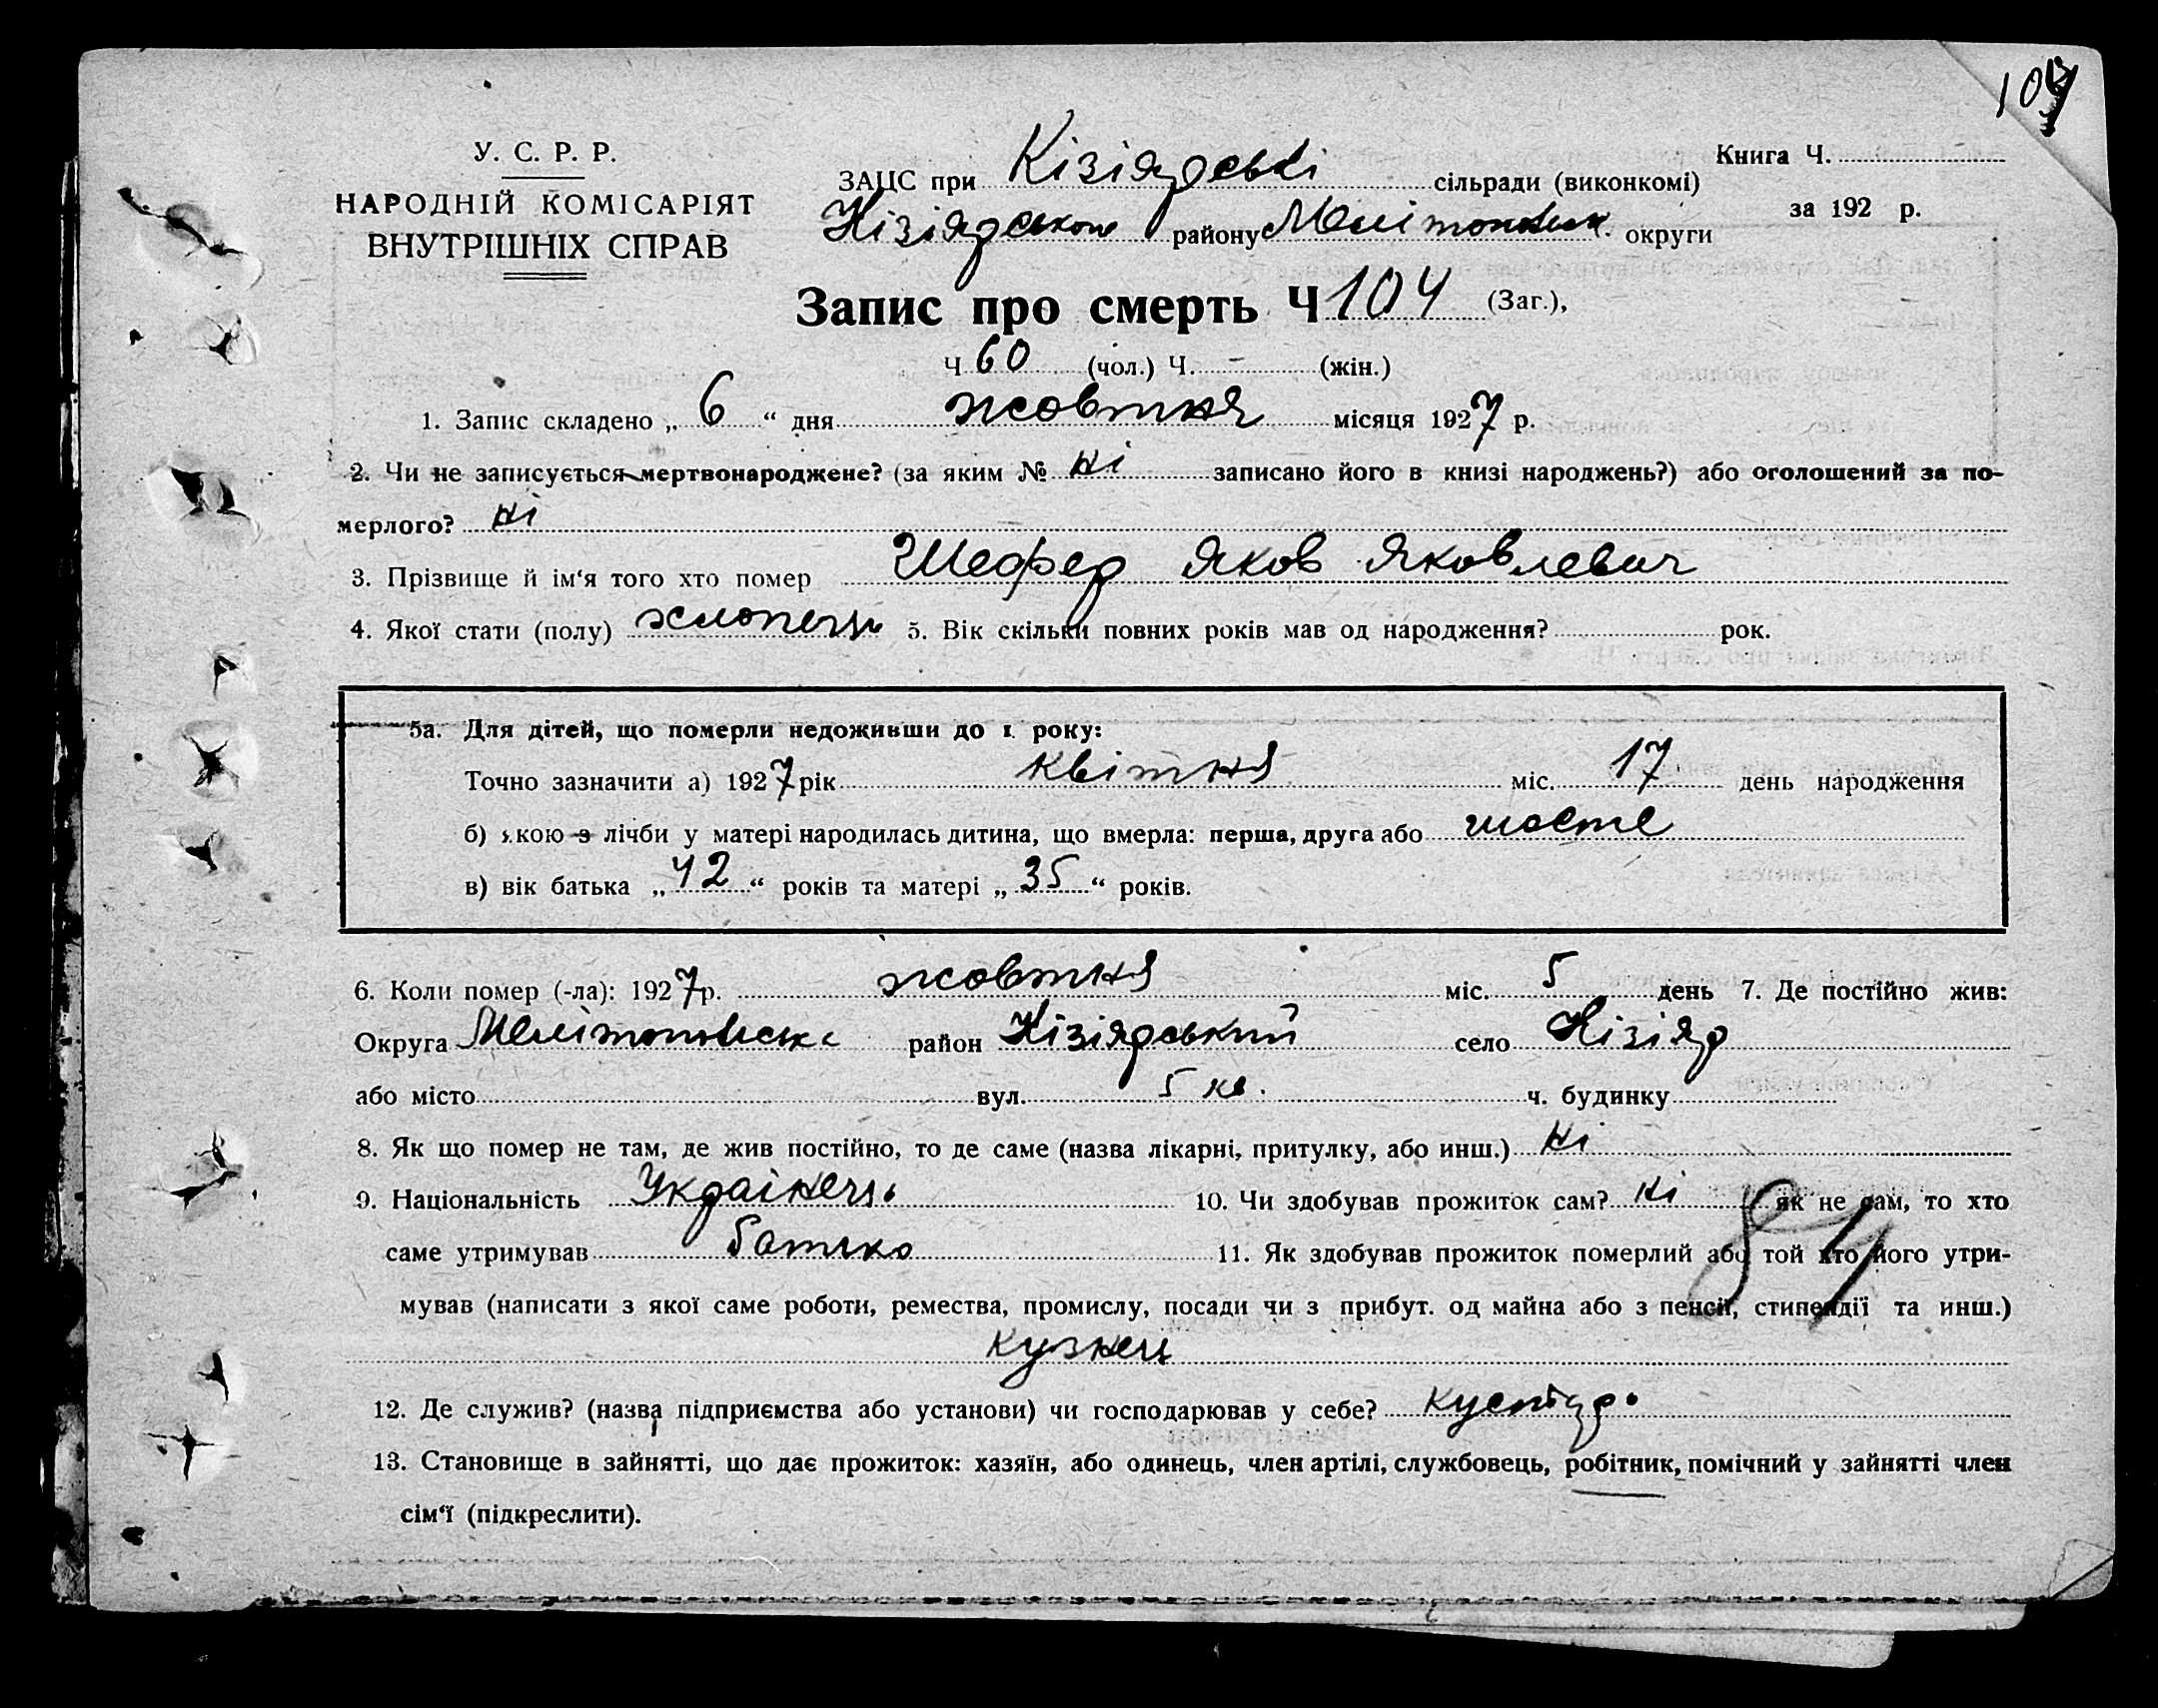 104
У. С. Р. Р.
НАРОДНІЙ КОМІСАРІЯТ
ВНУТРІШНІХ СПРАВ
Книга Ч.
за 192 р.
ЗАЦС при Кізіярські сільради (виконкомі)
Кізіярського району Мелітопольськ. округи
Запис про смерть Ч 104 (Заг.),
Ч 60 (чол.) Ч. – (жін.)
1. Запис складено „ 6 “ дня жовтня місяця 1927 р.
2. Чи не записується мертвонароджене? (за яким № ні записано його в книзі народжень?) або оголошений за по-
мерлого? ні
3. Прізвище й ім‘я того хто помер Шефер Яков Яковлевич
4. Якої стати (полу) хлопець 5. Вік скільки повних років мав од народження? рок.
5а. Для дітей, що померли недоживши до 1 року:
Точно зазначити а) 1927 рік квітня міс. 17 день народження
б) якою з лічби у матері народилась дитина, що вмерла: перша, друга або шосте
в) вік батька „ 42 “ років та матері „ 35 “ років.
6. Коли помер (-ла): 1927 р. жовтня міс. 5 день 7. Де постійно жив:
Округа Мелітопольська район Кізіярський село Кізіяр
або місто вул. 5 кв. ч. будинку
8. Як що помер не там, де жив постійно, то де саме (назва лікарні, притулку, або инш.) ні
9. Національність Українець 10. Чи здобував прожиток сам? ні як не сам, то хто
саме утримував батько 11. Як здобував прожиток померлий або той хто його утри-
мував (написати з якої саме роботи, ремества, промислу, посади чи з прибут. од майна або з пенсії, стипендії та инш.)
84
кузнец
12. Де служив? (назва підприємства або установи) чи господарював у себе? кустарь
13. Становище в зайнятті, що дає прожиток: хазяїн, або одинець, член артілі, службовець, робітник, помічний у зайнятті член
сім‘ї (підкреслити).